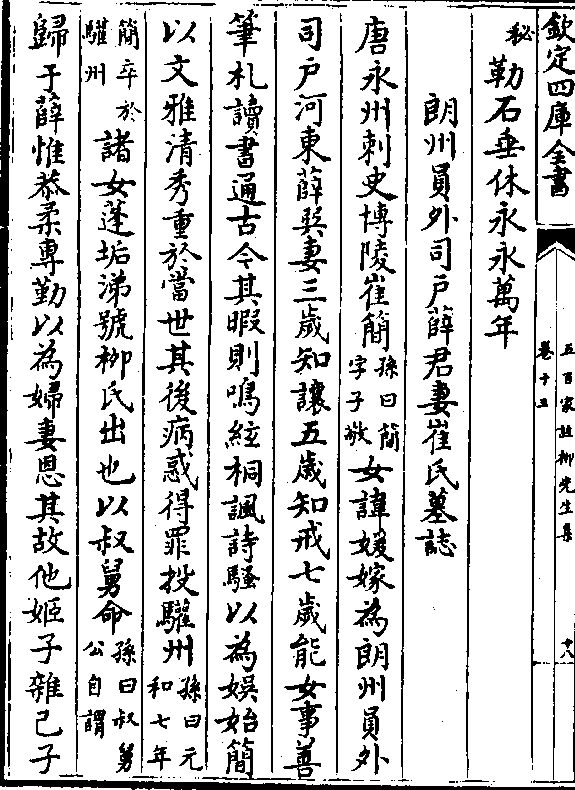 欽定四庫全書
五百家註柳先生集
卷十五
十八
秘
勒石垂休永永萬年
朗州員外司户薛君妻崔氏墓誌
唐永州刺史博陵崔簡孫曰簡字子敬女諱媛嫁為朗州員外
司户河東薛巽妻三歲知讓五歲知戒七歲能女事善
筆札讀書通古今其暇則鳴絃桐諷詩騷以為娛始簡
以文雅清秀重於當世其後病惑得罪投驩州孫曰元和七年
簡卒於驩州諸女蓬垢涕號柳氏出也以叔舅命孫曰叔舅公自謂
歸于薛惟恭柔專勤以為婦妻恩其故他姬子雜己子